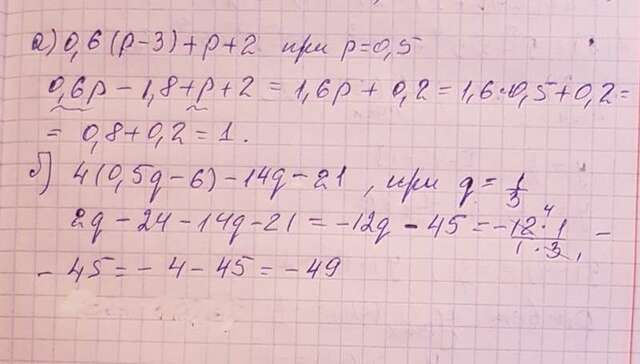 а) 0,6(p-3)+p+2 при p=0,5
0,6p - 1,8+p+2 = 1,6p + 0,2 = 1,6·0,5+0,2=
= 0,8+0,2 = 1.
б) 4(0,5q-6)-14q-21, при q = 1/3
2q-24-14q-21 = -12q-45 = -12⁴·1/1·3 -
- 45 = - 4 - 45 = - 49